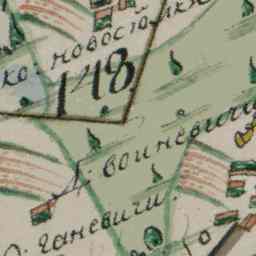 ко: новосіолки
148
Д: воиневичи
О: ганевичи.